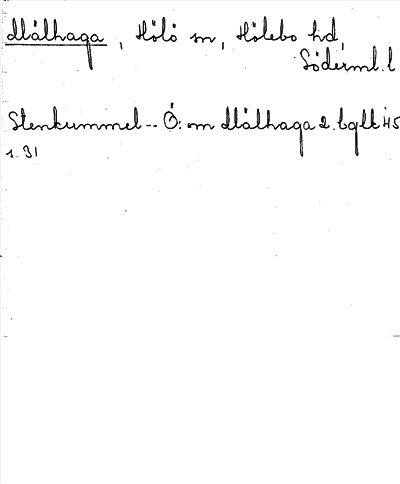 Målhaga, Hölö sn, Hölebo hd,
Söderml. l
Stenkummel -- Ö: om Målhaga 2. bglk 45
1.31